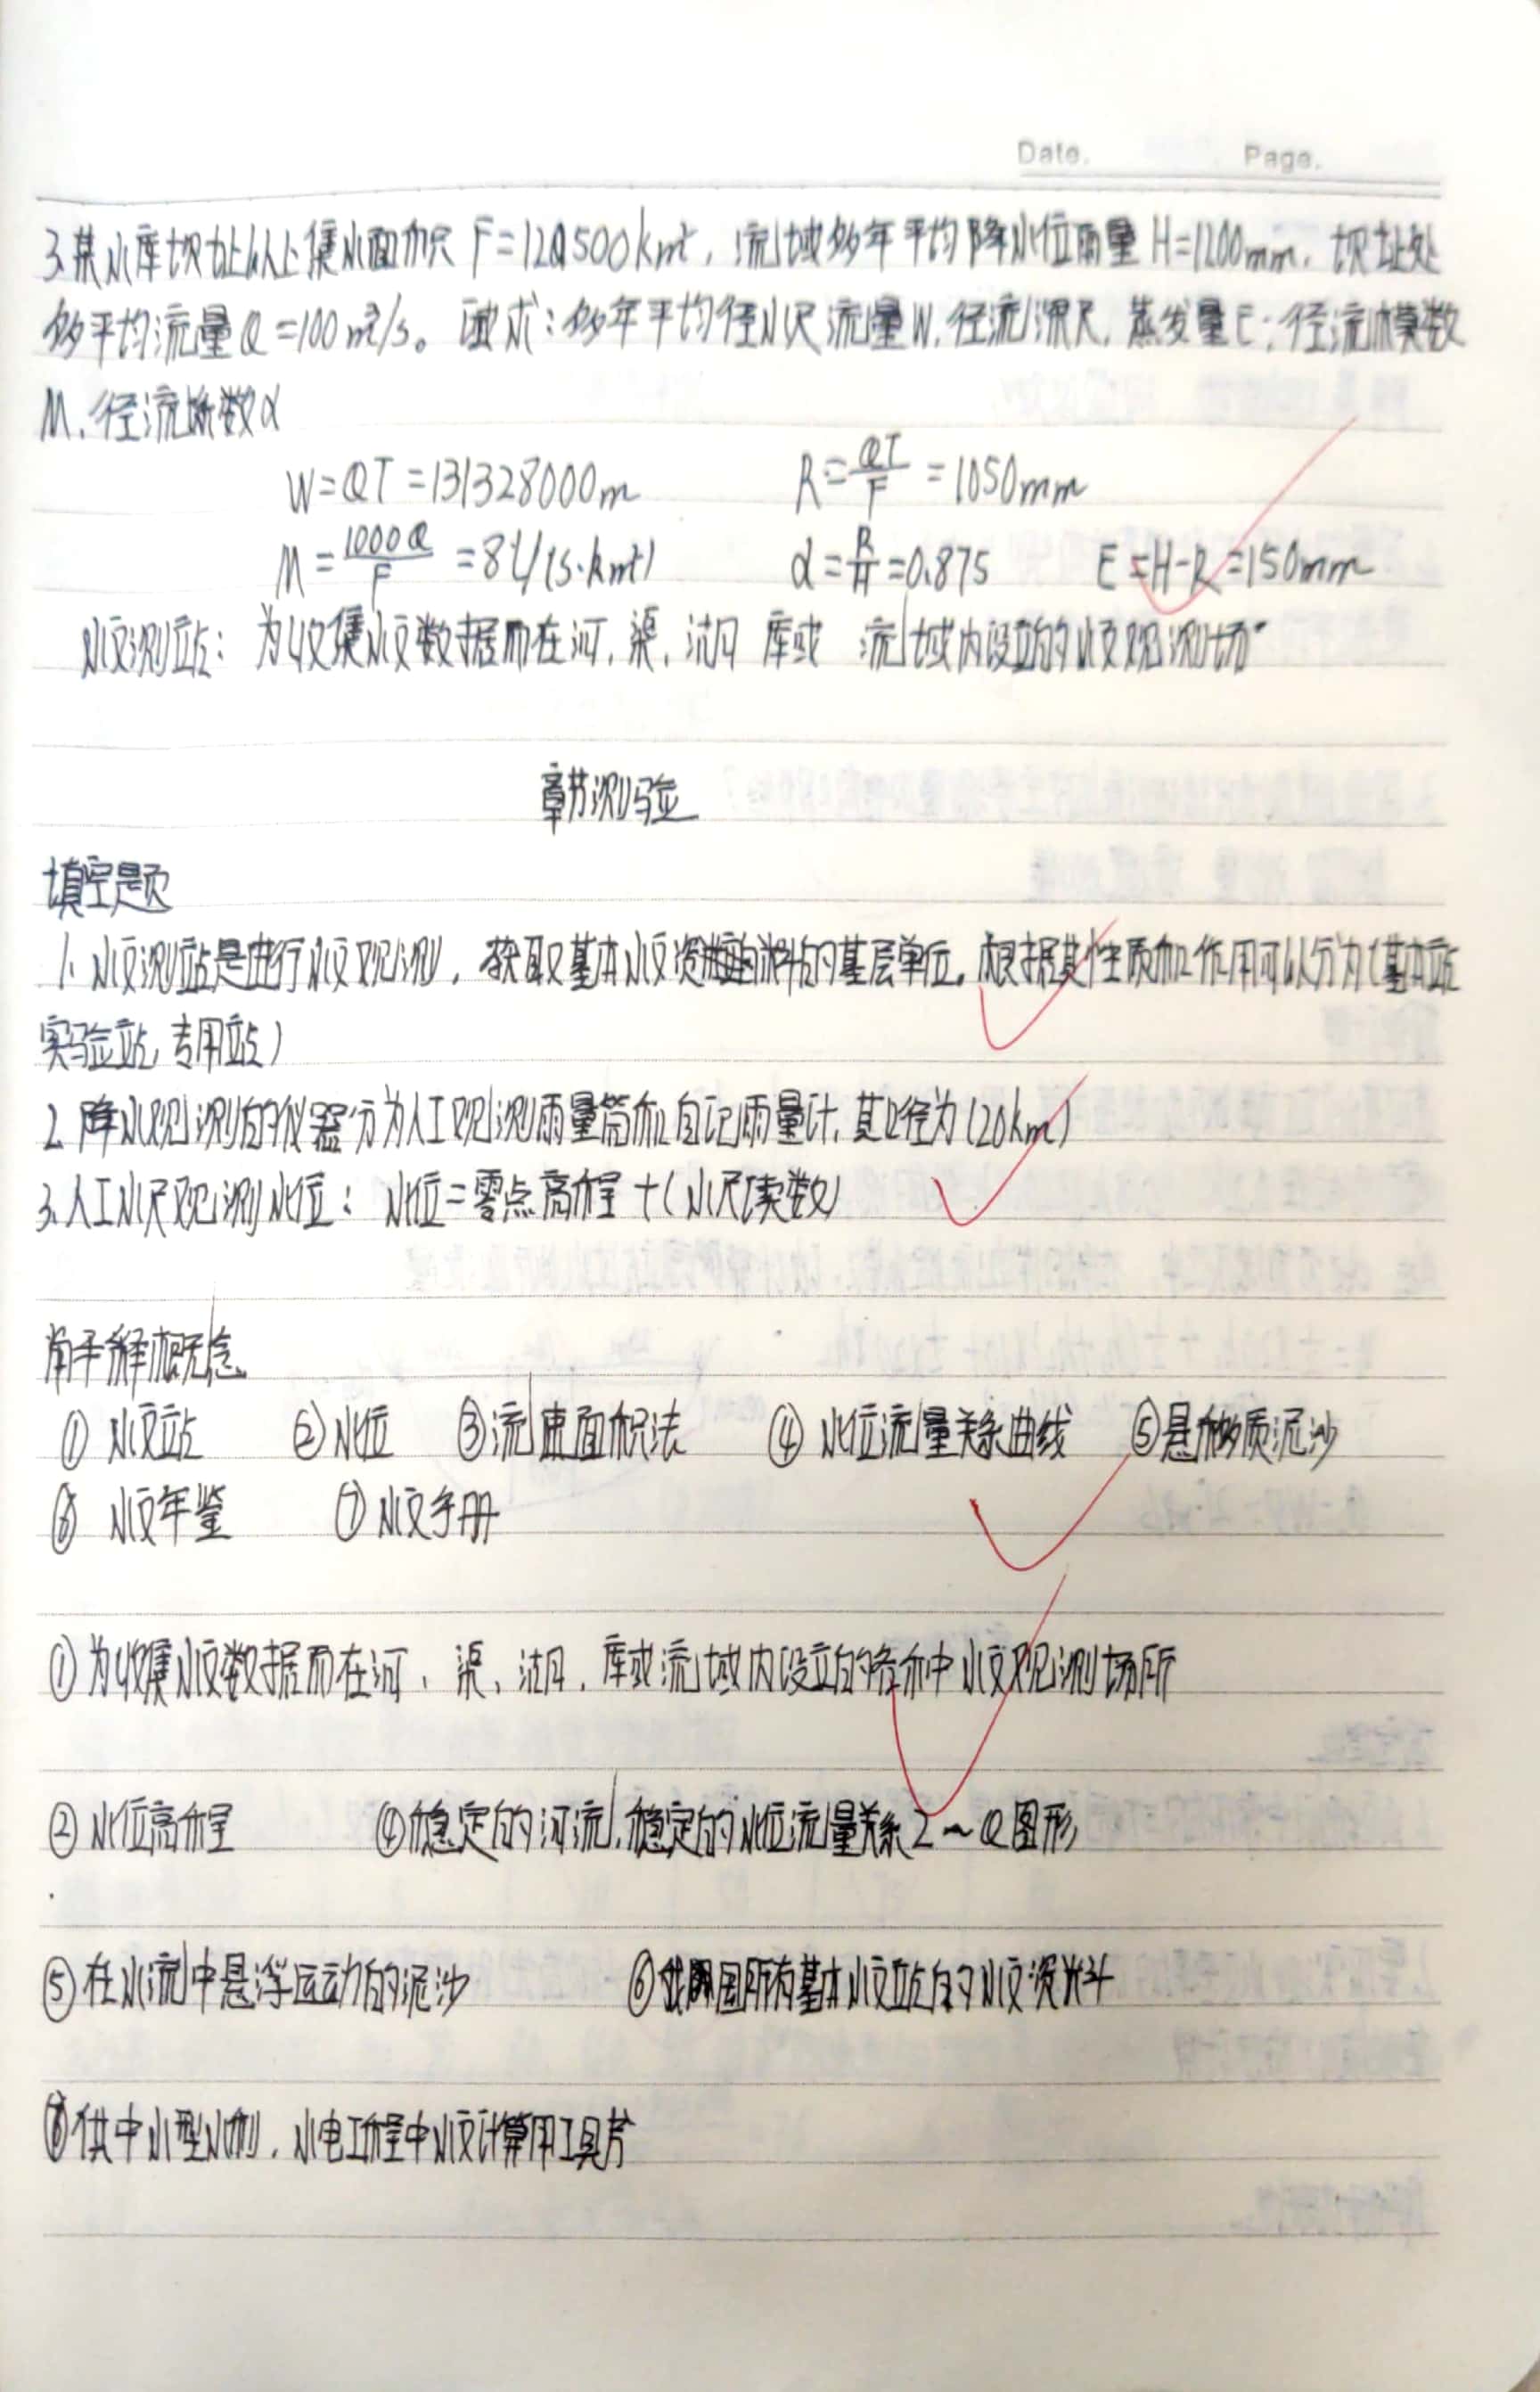 Date. Page.
3.某水库坝址以上集水面积 F=120500km², 流域多年平均降水位雨量 H=1200mm, 坝址处
多平均流量Q=100m³/s。试求:多年平均径水尺流量W,径流深R,蒸发量E;径流模数
M、径流系数α
W=QT=131328000m R=QT/F=1050mm
M=1000Q/F=8L/(s·km²) α=R/H=0.875 E=H-R=150mm
水文测站:为收集水文数据而在河、渠、湖 库或 流域内设立的水文观测场
章节测验
填空题
1.水文测站是进行水文观测,获取基本水文资料的基层单位,根据其性质和作用可以分为(基本站
实验站,专用站)
2.降水观测的仪器分为人工观测雨量筒和自记雨量计,其口径为(20km)
3.人工水尺观测水位: 水位=零点高程+(水尺读数)
解释概念
① 水文站 ②水位 ③流速面积法 ④ 水位流量关系曲线 ⑤悬移质泥沙
⑥ 水文年鉴 ⑦水文手册
①为收集水文数据而在河、渠、湖、库或流域内设立的各种中水文观测场所
②水位高程 ④稳定的河流,稳定的水位流量关系Z~Q图形
⑤在水流中悬浮运动的泥沙 ⑥我国所有基本水文站的水文资料
⑦供中小型水利、水电工程中水文计算用工具书